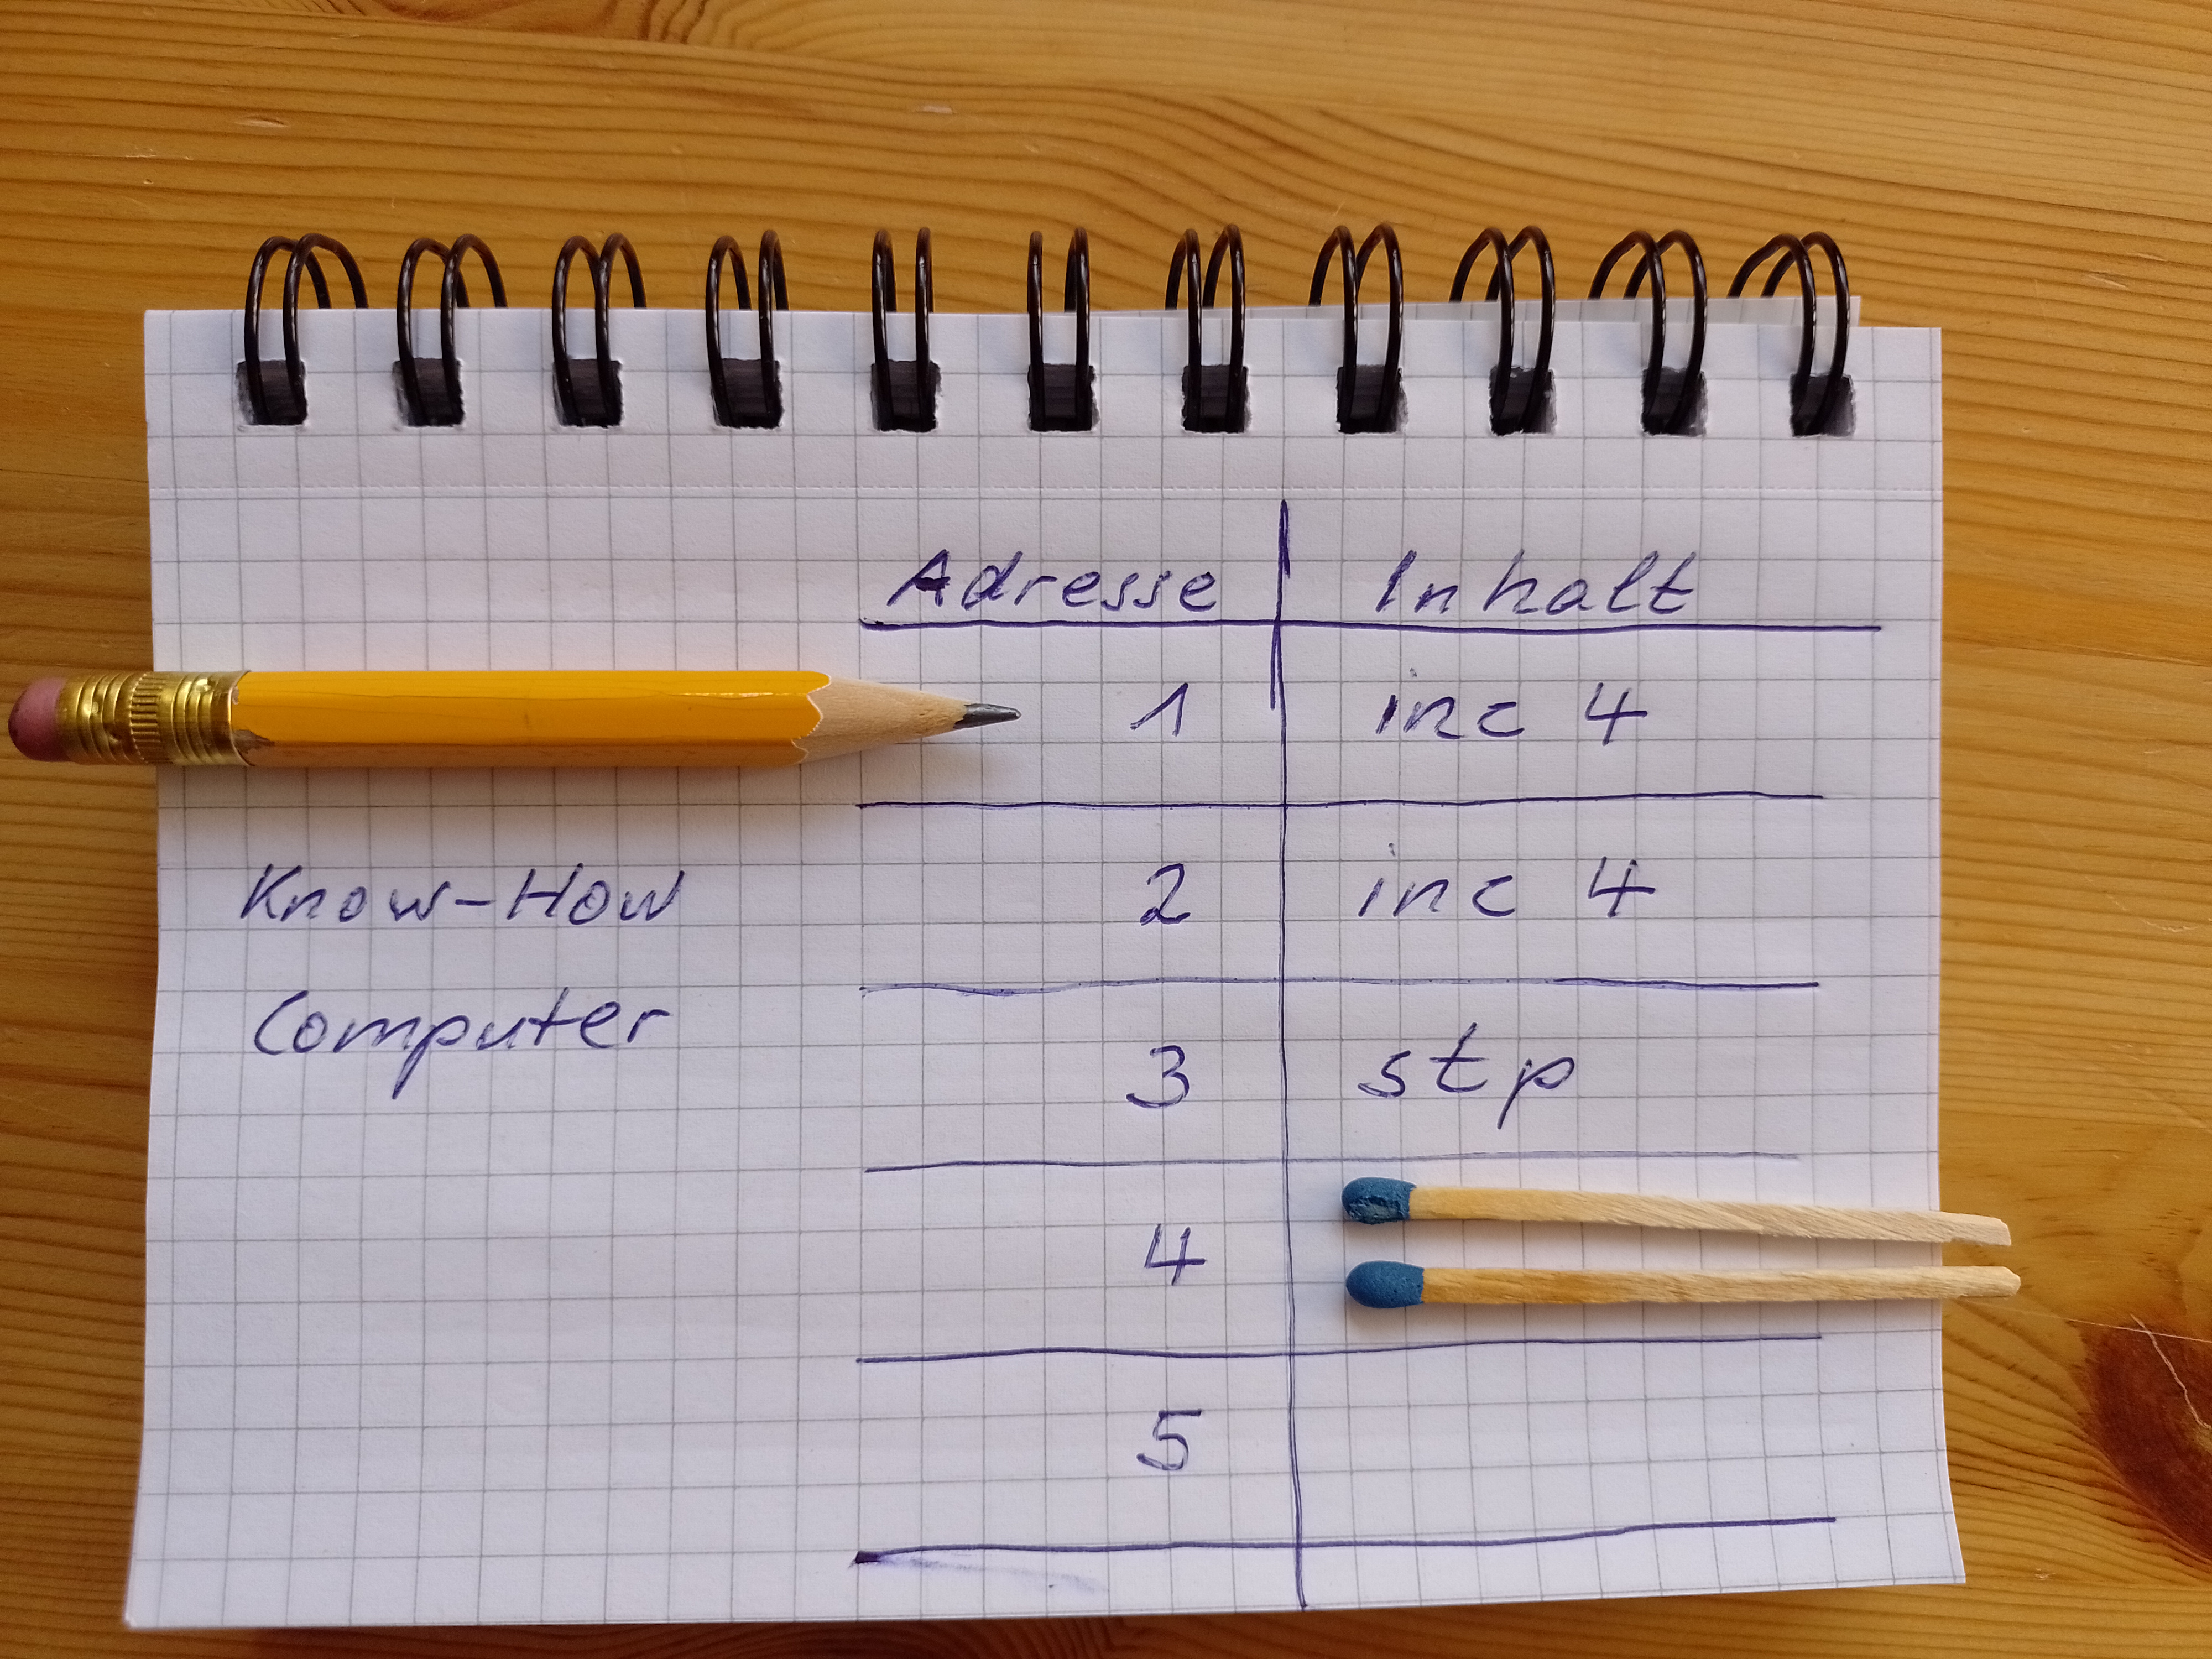 Adresse Inhalt
1 inc 4
2 inc 4
Know-How
Computer
3 stp
4
5